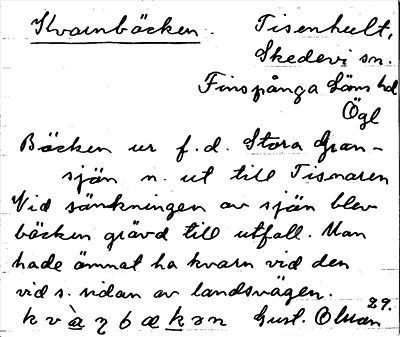 Kvarnbäcken. Tisenhult,
Skedevi sn.
Finspånga Läns hd
Ögl
Bäcken ur f.d. Stora Gran-
sjön n. ut till Tisnaren
Vid sänkningen av sjön blev
bäcken grävd till utfall. Man
hade ämnat ha kvarn vid den
vid s. sidan av landsvägen.
29.
Gust. Olman